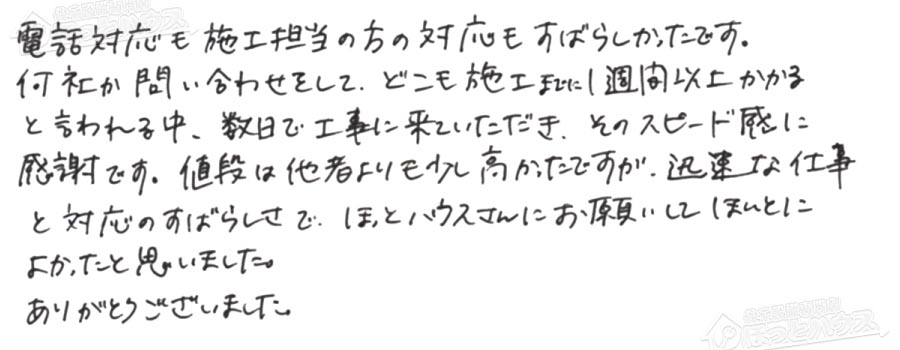 電話対応も施工担当の方の対応もすばらしかったです。
何社か問い合わせをして、どこも施工までに1週間以上かかる
と言われる中、数日で工事に来ていただき、そのスピード感に
感謝です。値段は他者よりも少し高かったですが、迅速な仕事
と対応のすばらしさで、ほっとハウスさんにお願いしてほんとに
よかったと思いました。
ありがとうございました。
ほっとハウス